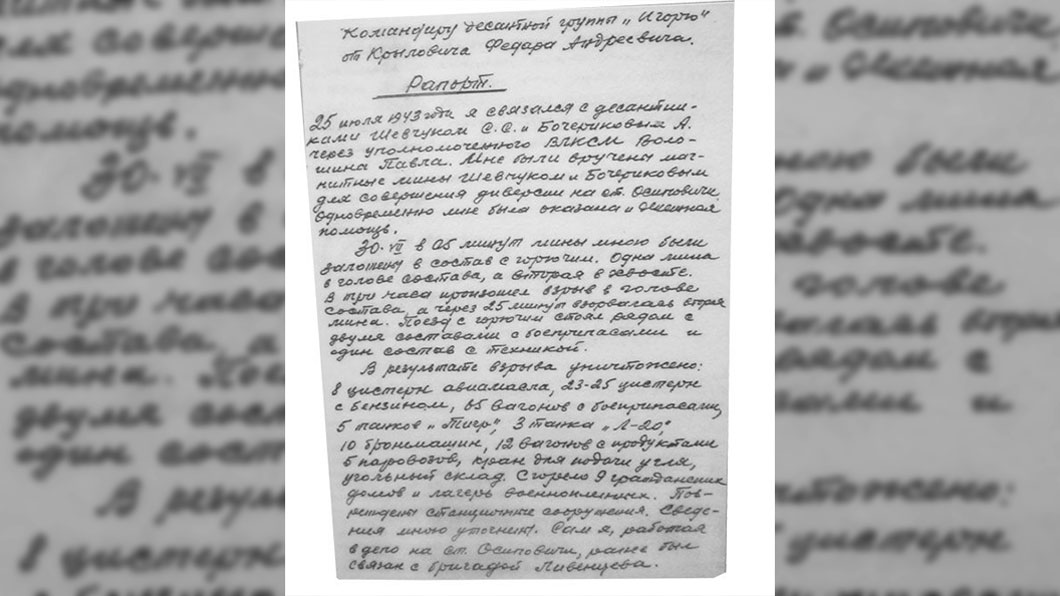 Командиру десантной группы „Игорю"
от Крыловича Федара Андреевича.
Рапорт.
25 июля 1943 года я связался с десантни-
ками Шевчуком С.С. и Бочериковым А.
через уполномоченного ВЛКСМ Воло-
шина Павла. Мне были вручены маг-
нитные мины Шевчуком и Бочериковым
для совершения диверсии на ст. Осиповичи,
одновременно мне была оказана и денежная
помощь.
30.VII в 05 минут мины мною были
заложены в состав с горючим. Одна мина
в голове состава, а вторая в хвосте.
В три часа произошел взрыв в голове
состава, а через 25 минут взорвалась вторая
мина. Поезд с горючим стоял рядом с
двумя составами с боеприпасами и
один состав с техникой.
В результате взрыва уничтожено:
8 цистерн авиамасла, 23-25 цистерн
с бензином, 65 вагонов с боеприпасами,
5 танков „Тигр", 3 танка „Л-20",
10 бронемашин, 12 вагонов с продуктами
5 паровозов, кран для подачи угля,
угольный склад. Сгорело 9 гражданских
домов и лагерь военнопленных. Пов-
реждены станционные сооружения. Сведе-
ния мною уточнены. Сам я, работая
в депо на ст. Осиповичи, ранее был
связан с бригадой Ливенцева.